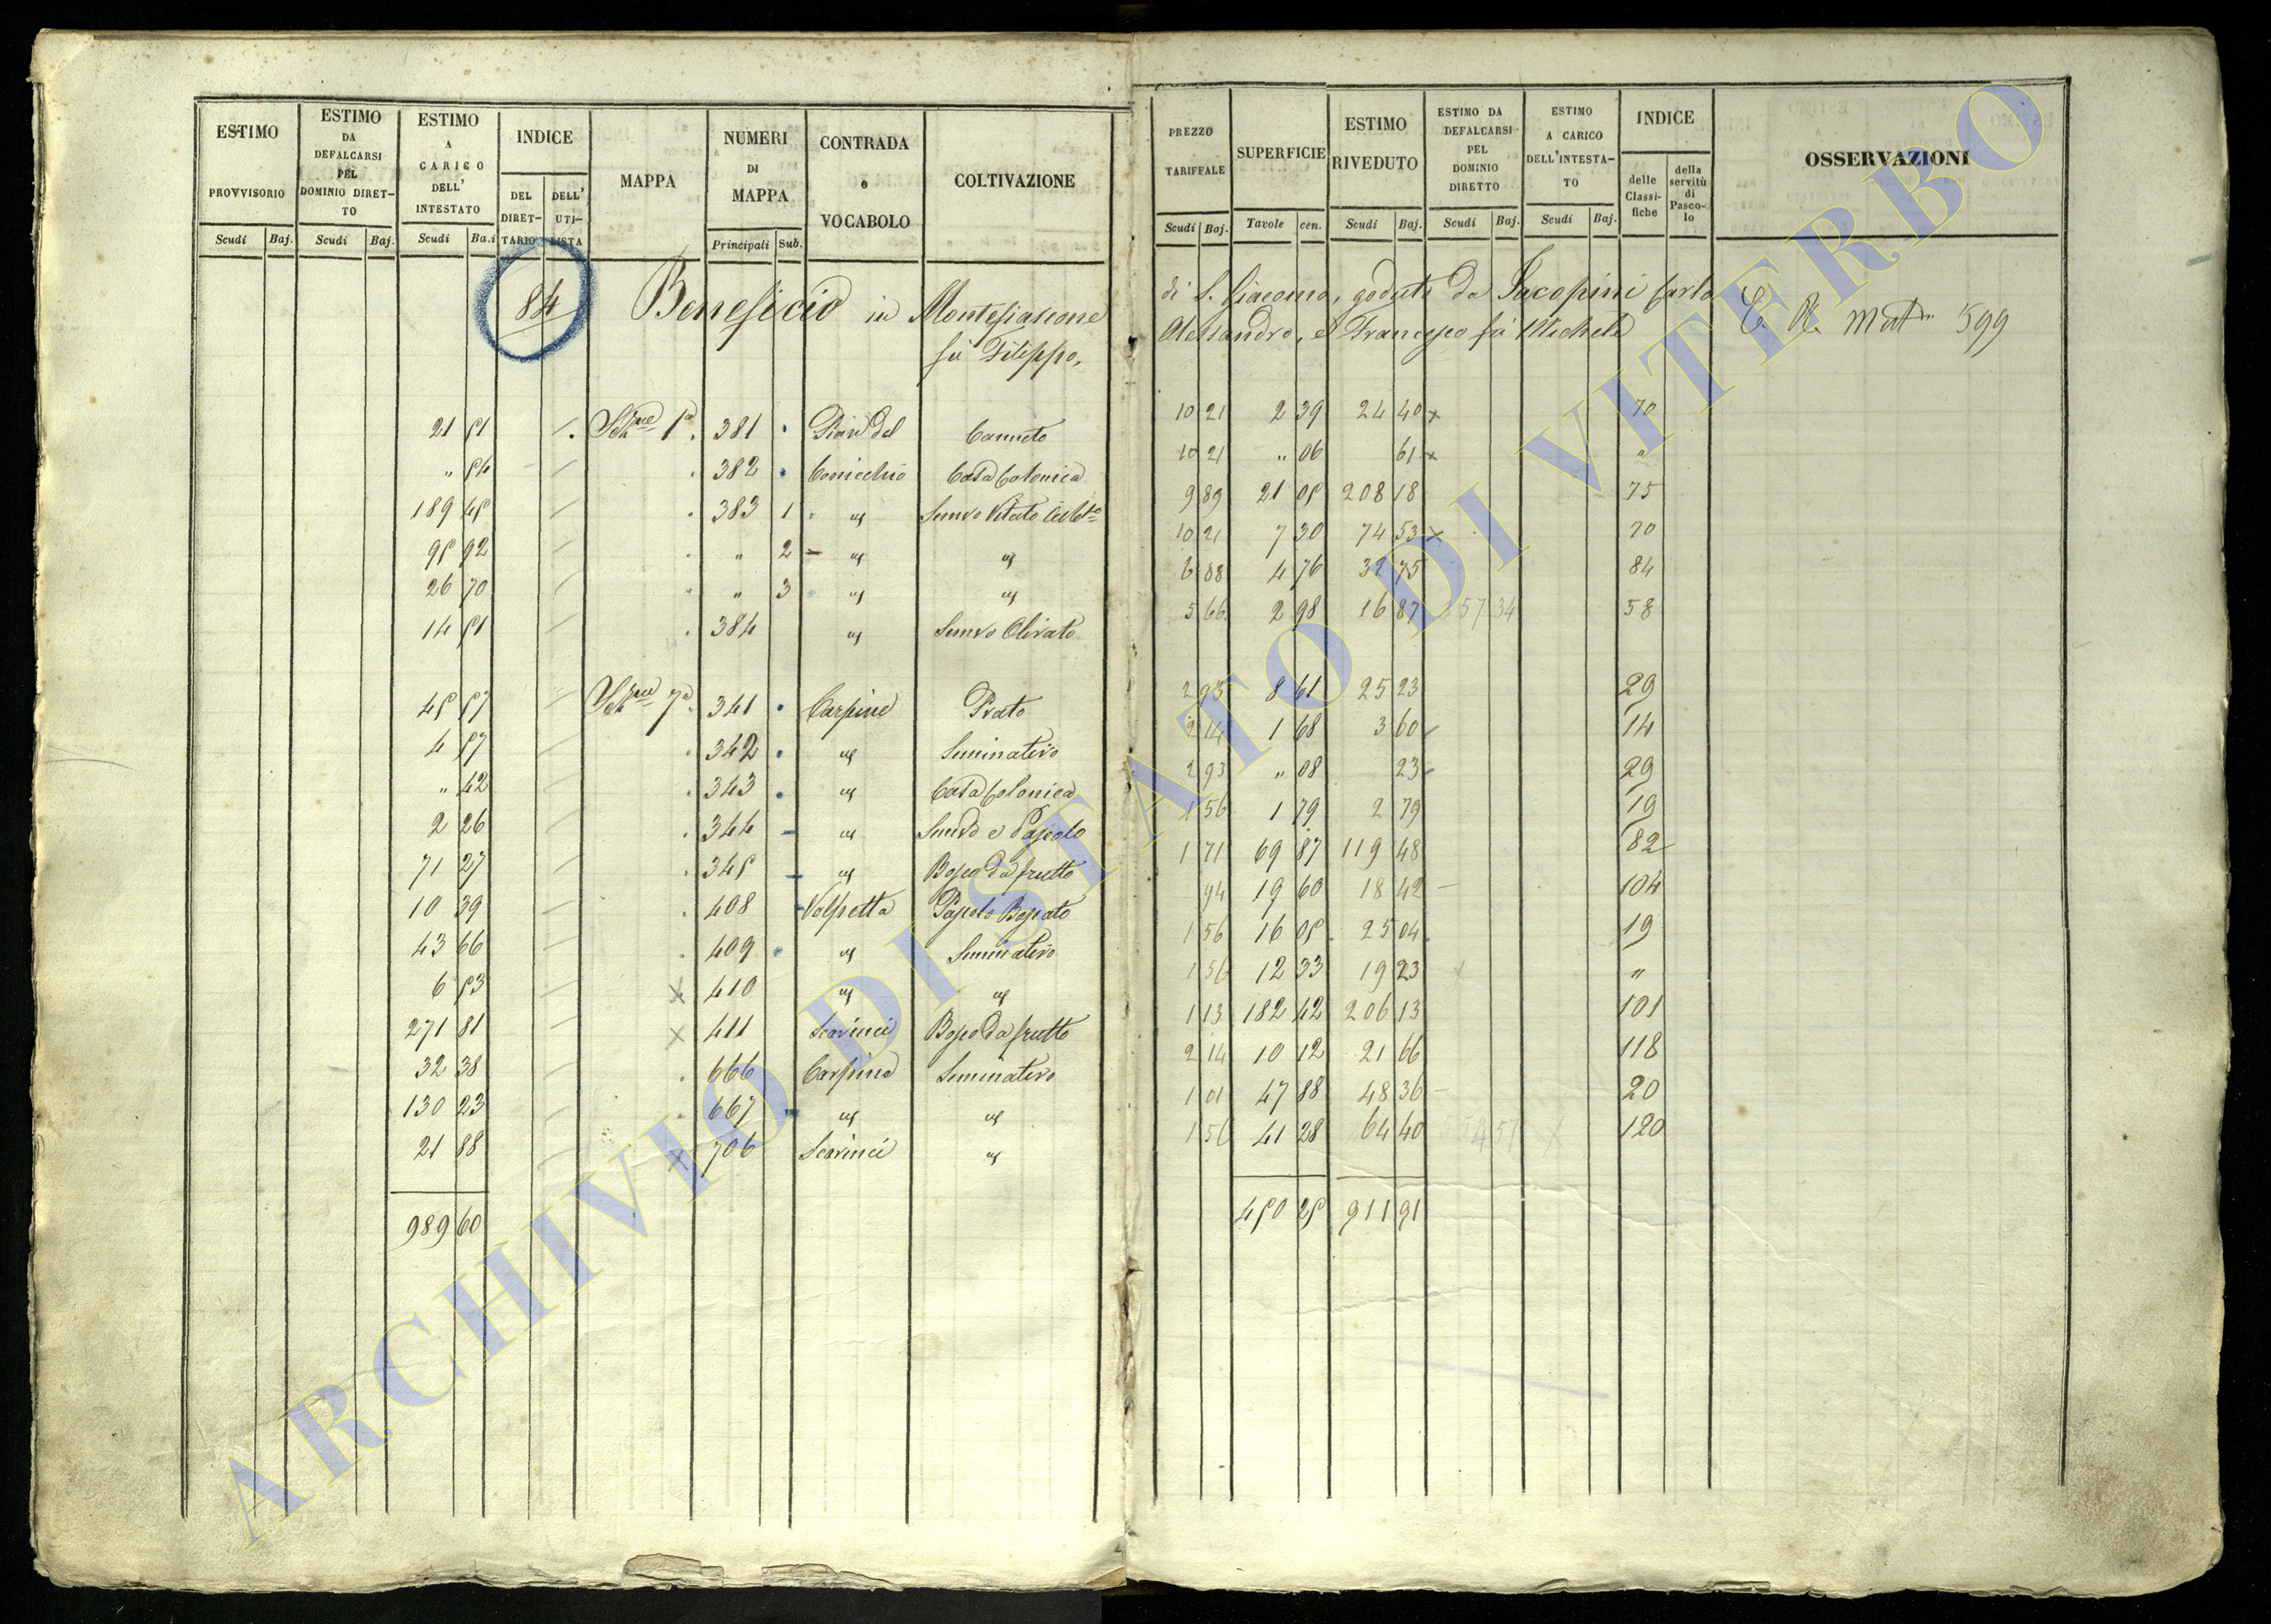 ESTIMO PROVVISORIO | ESTIMO DA DEFALCARSI PEL DOMINIO DIRETTO | ESTIMO A CARICO DELL' INTESTATO | INDICE | MAPPA | NUMERI DI MAPPA | CONTRADA o VOCABOLO | COLTIVAZIONE | PREZZO TARIFFALE | SUPERFICIE | ESTIMO RIVEDUTO | ESTIMO DA DEFALCARSI PEL DOMINIO DIRETTO | ESTIMO A CARICO DELL'INTESTATO | INDICE | OSSERVAZIONI
DEL DIRETTARIO | DELL' UTILISTA | delle Classifiche | della servitù di Pascolo
Scudi | Baj. | Scudi | Baj. | Scudi | Ba.i | Principali | Sub. | Scudi | Baj. | Tavole | cen. | Scudi | Baj. | Scudi | Baj. | Scudi | Baj.
84 Beneficio in Montefiascone di S. Giacomo, goduto da Jacopini Carlo
fù Filippo, Alessandro, e Francesco fù Michele
C. R. Mat. 599
21 51 | Sez.ne 1a | 381 | Pian del | Canneto | 10 21 | 2 39 | 24 40 x | 70
" 54 | 382 | Cornicchio | Casa Colonica | 10 21 | " 06 | 61 x | "
189 45 | 383 | 1 | " | Semvo Vitato | 9 89 | 21 05 | 208 18 | 75
95 92 | " | 2 | " | " | 10 21 | 7 30 | 74 53 x | 70
26 70 | " | 3 | " | " | 6 88 | 4 76 | 32 75 | 84
14 51 | 384 | " | Semvo Olivato | 5 66 | 2 98 | 16 87 | 57 34 | 58
45 57 | Sez.ne 7a | 341 | Carpine | Prato | 2 93 | 8 61 | 25 23 | 29
4 57 | 342 | " | Seminativo | 2 14 | 1 68 | 3 60 | 14
" 42 | 343 | " | Casa Colonica | 2 93 | " 08 | 23 | 29
2 26 | 344 | " | Semvo e Pascolo | 1 56 | 1 79 | 2 79 | 19
71 27 | 345 | " | Bosco da frutto | 1 71 | 69 87 | 119 48 | 82
10 39 | 408 | Volpetta | Pascolo Boscato | 94 | 19 60 | 18 42 | 104
43 66 | 409 | " | Seminativo | 1 56 | 16 05 | 25 04 | 19
6 53 | x | 410 | " | " | 1 56 | 12 33 | 19 23 | "
271 81 | x | 411 | Scarinci | Bosco da frutto | 1 13 | 182 42 | 206 13 | 101
32 38 | 666 | Carpine | Seminativo | 2 14 | 10 12 | 21 66 | 118
130 23 | 667 | " | " | 1 01 | 47 88 | 48 36 | 20
21 88 | x | 706 | Scarinci | " | 1 56 | 41 28 | 64 40 | 120
989 60 | 450 25 | 911 91
ARCHIVIO DI STATO DI VITERBO